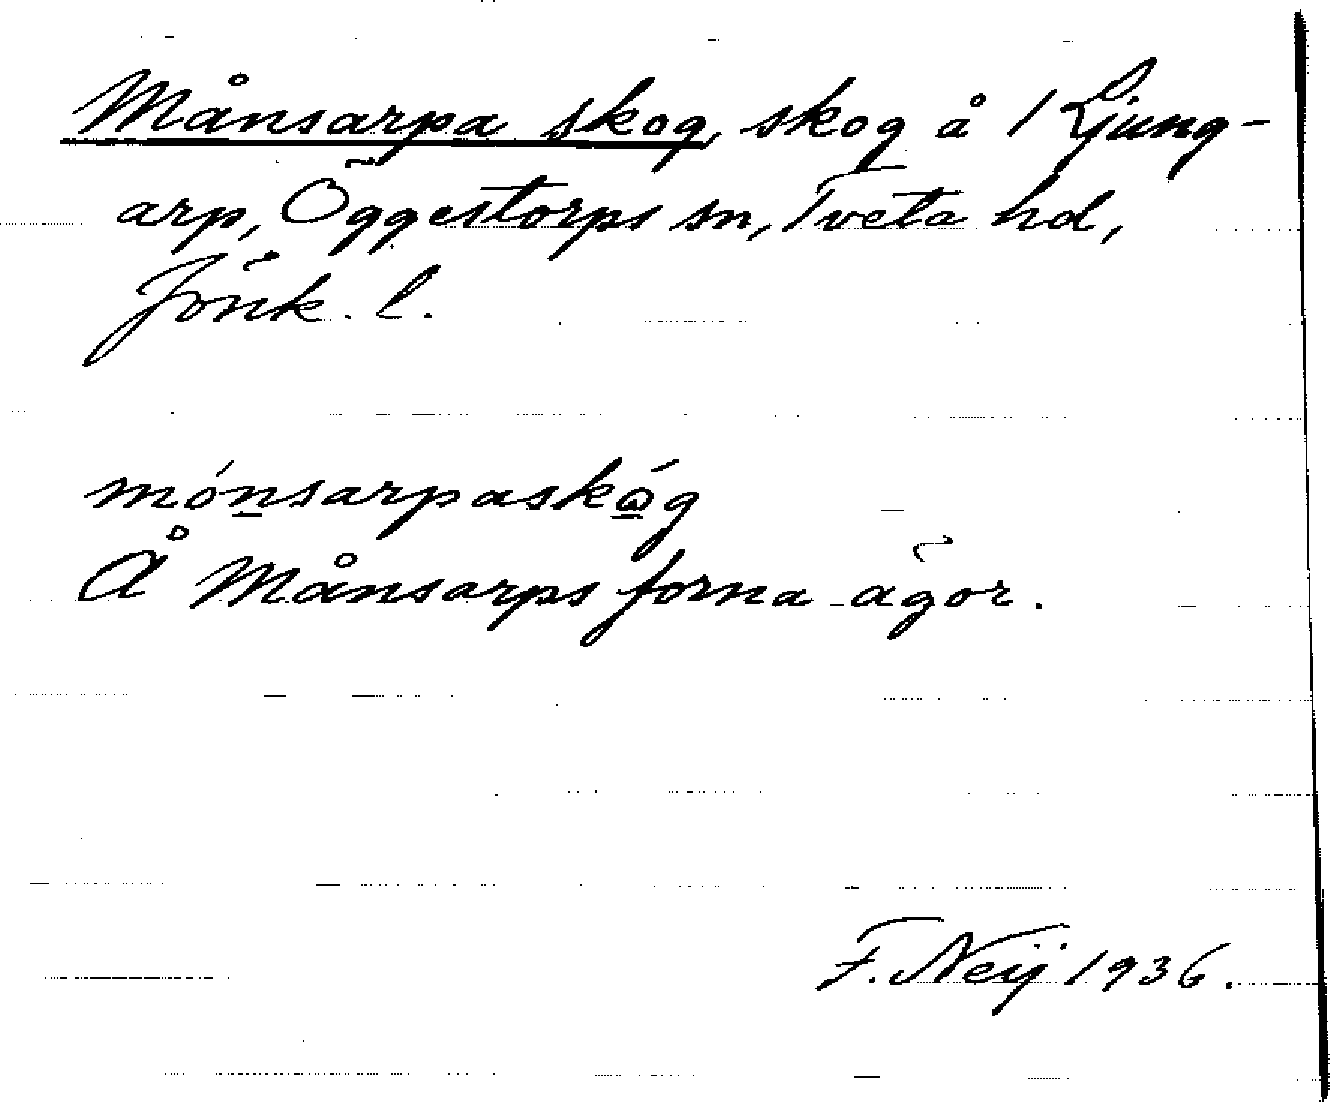 Månsarpa skog, skog å 1 Ljung-
arp, Öggestorps sn, Tveta hd,
Jönk. l.
mónsarpaskóg
Å Månsarps forna ägor.
F. Neij 1936.